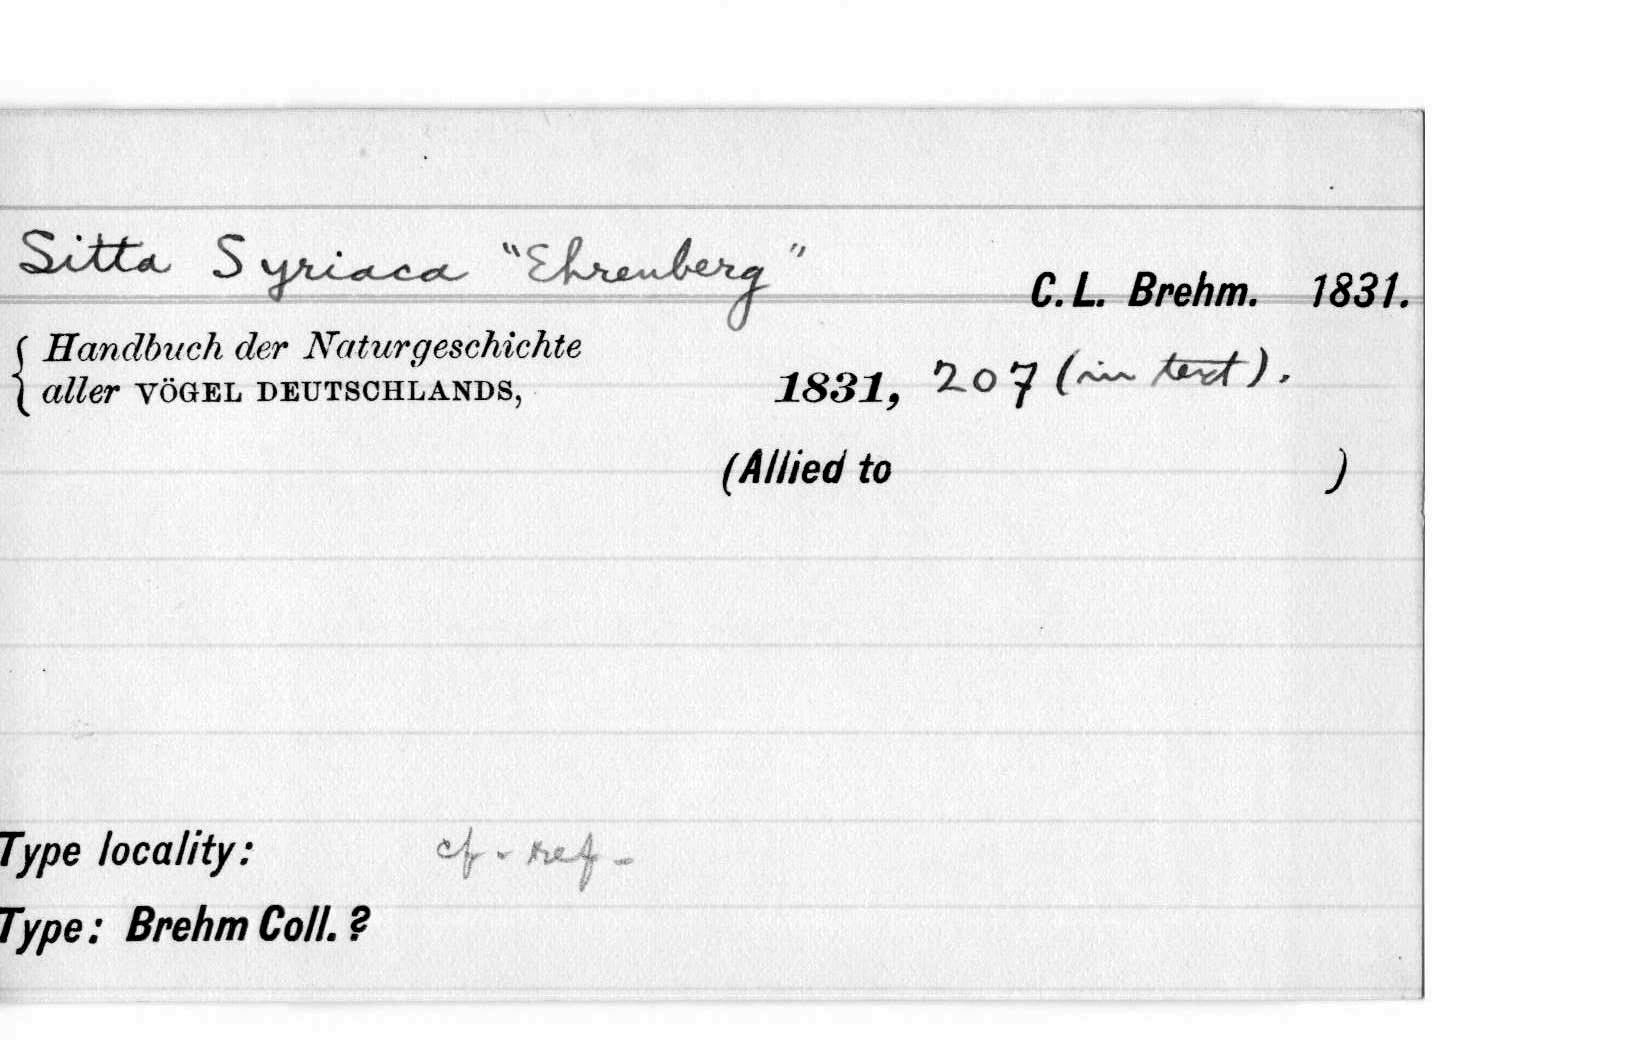 Sitta Syriaca "Ehrenberg" C. L. Brehm. 1831.
Handbuch der Naturgeschichte
aller VÖGEL DEUTSCHLANDS, 1831, 207 (in text).
(Allied to )
Type locality: cf. ref.
Type: Brehm Coll. ?